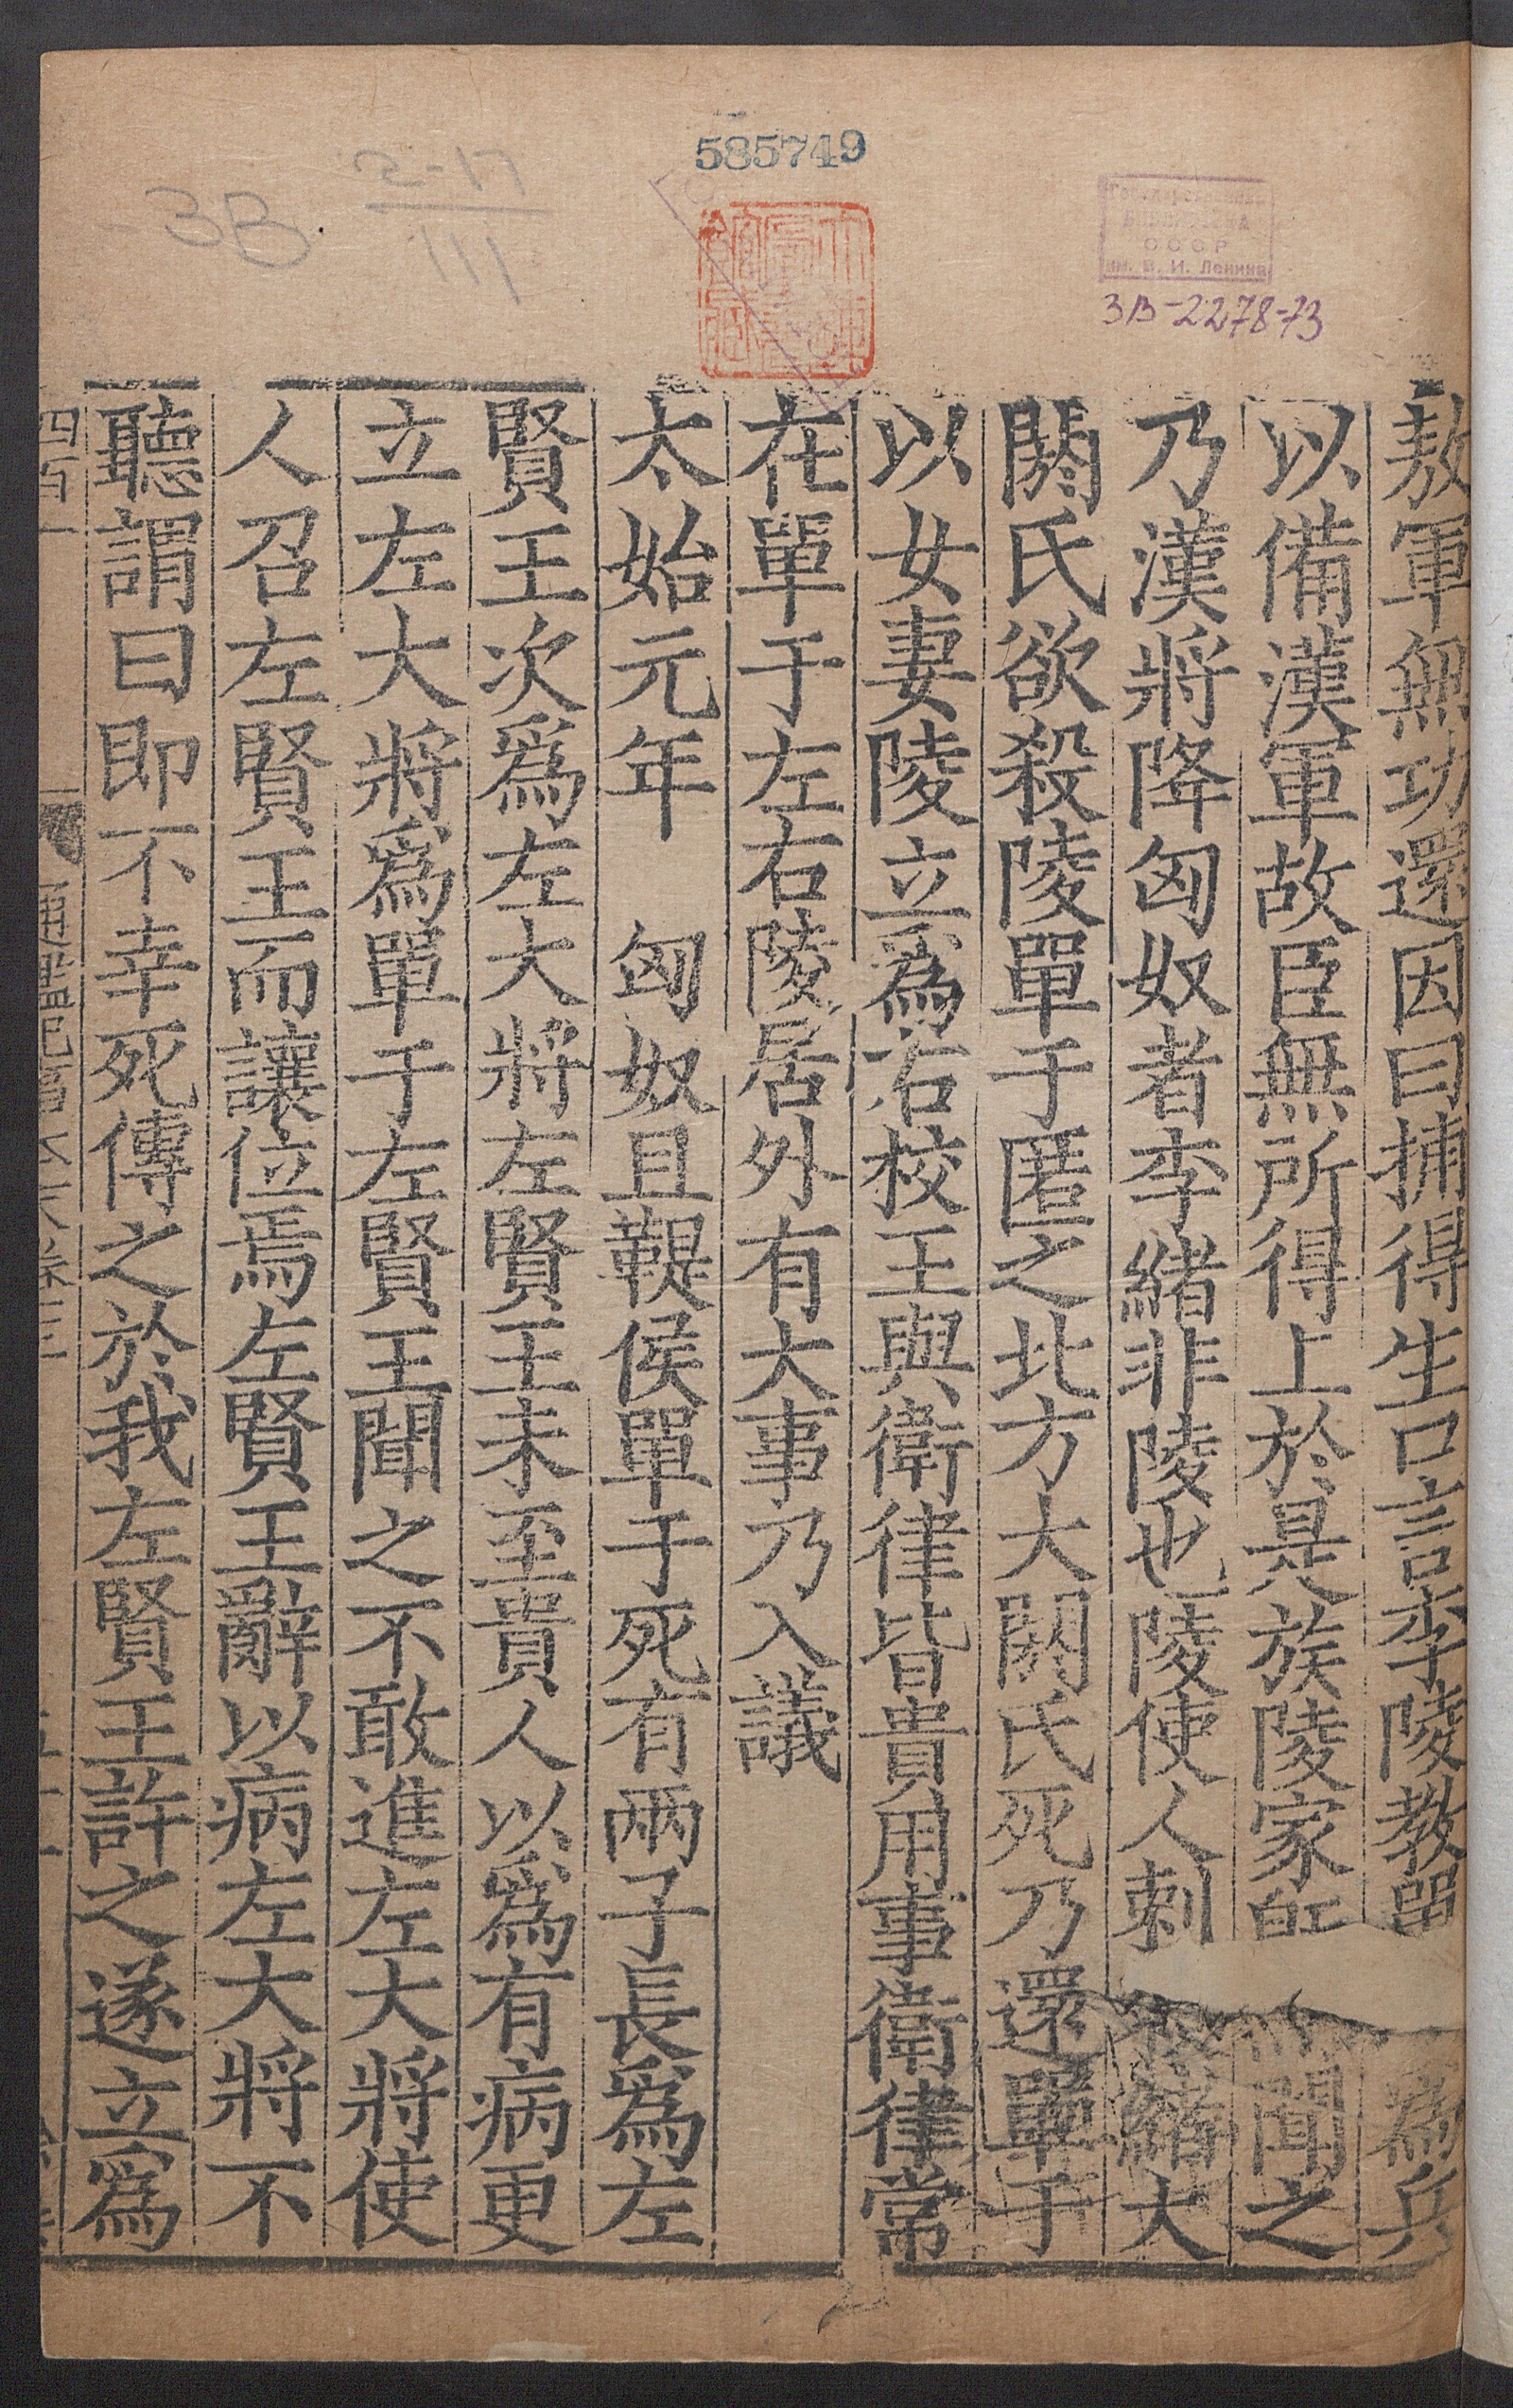 585749
2-17
111
3B.
СССР
им. В. И. Ленина
3В-2278-73
敖軍無功還因曰捕得生口言李陵教單爲兵
以備漢軍故臣無所得上於是族陵家聞之
乃漢將降匈奴者李緒非陵也陵使人刺緒大
閼氏欲殺陵單于匿之北方大閼氏死乃還單于
以女妻陵立爲右校王與衛律皆貴用事衛律常
在單于左右陵居外有大事乃入議
太始元年 匈奴且鞮侯單于死有兩子長爲左
賢王次爲左大將左賢王未至貴人以爲有病更
立左大將爲單于左賢王聞之不敢進左大將使
人召左賢王而讓位焉左賢王辭以病左大將不
聽謂曰即不幸死傳之於我左賢王許之遂立爲
四百一